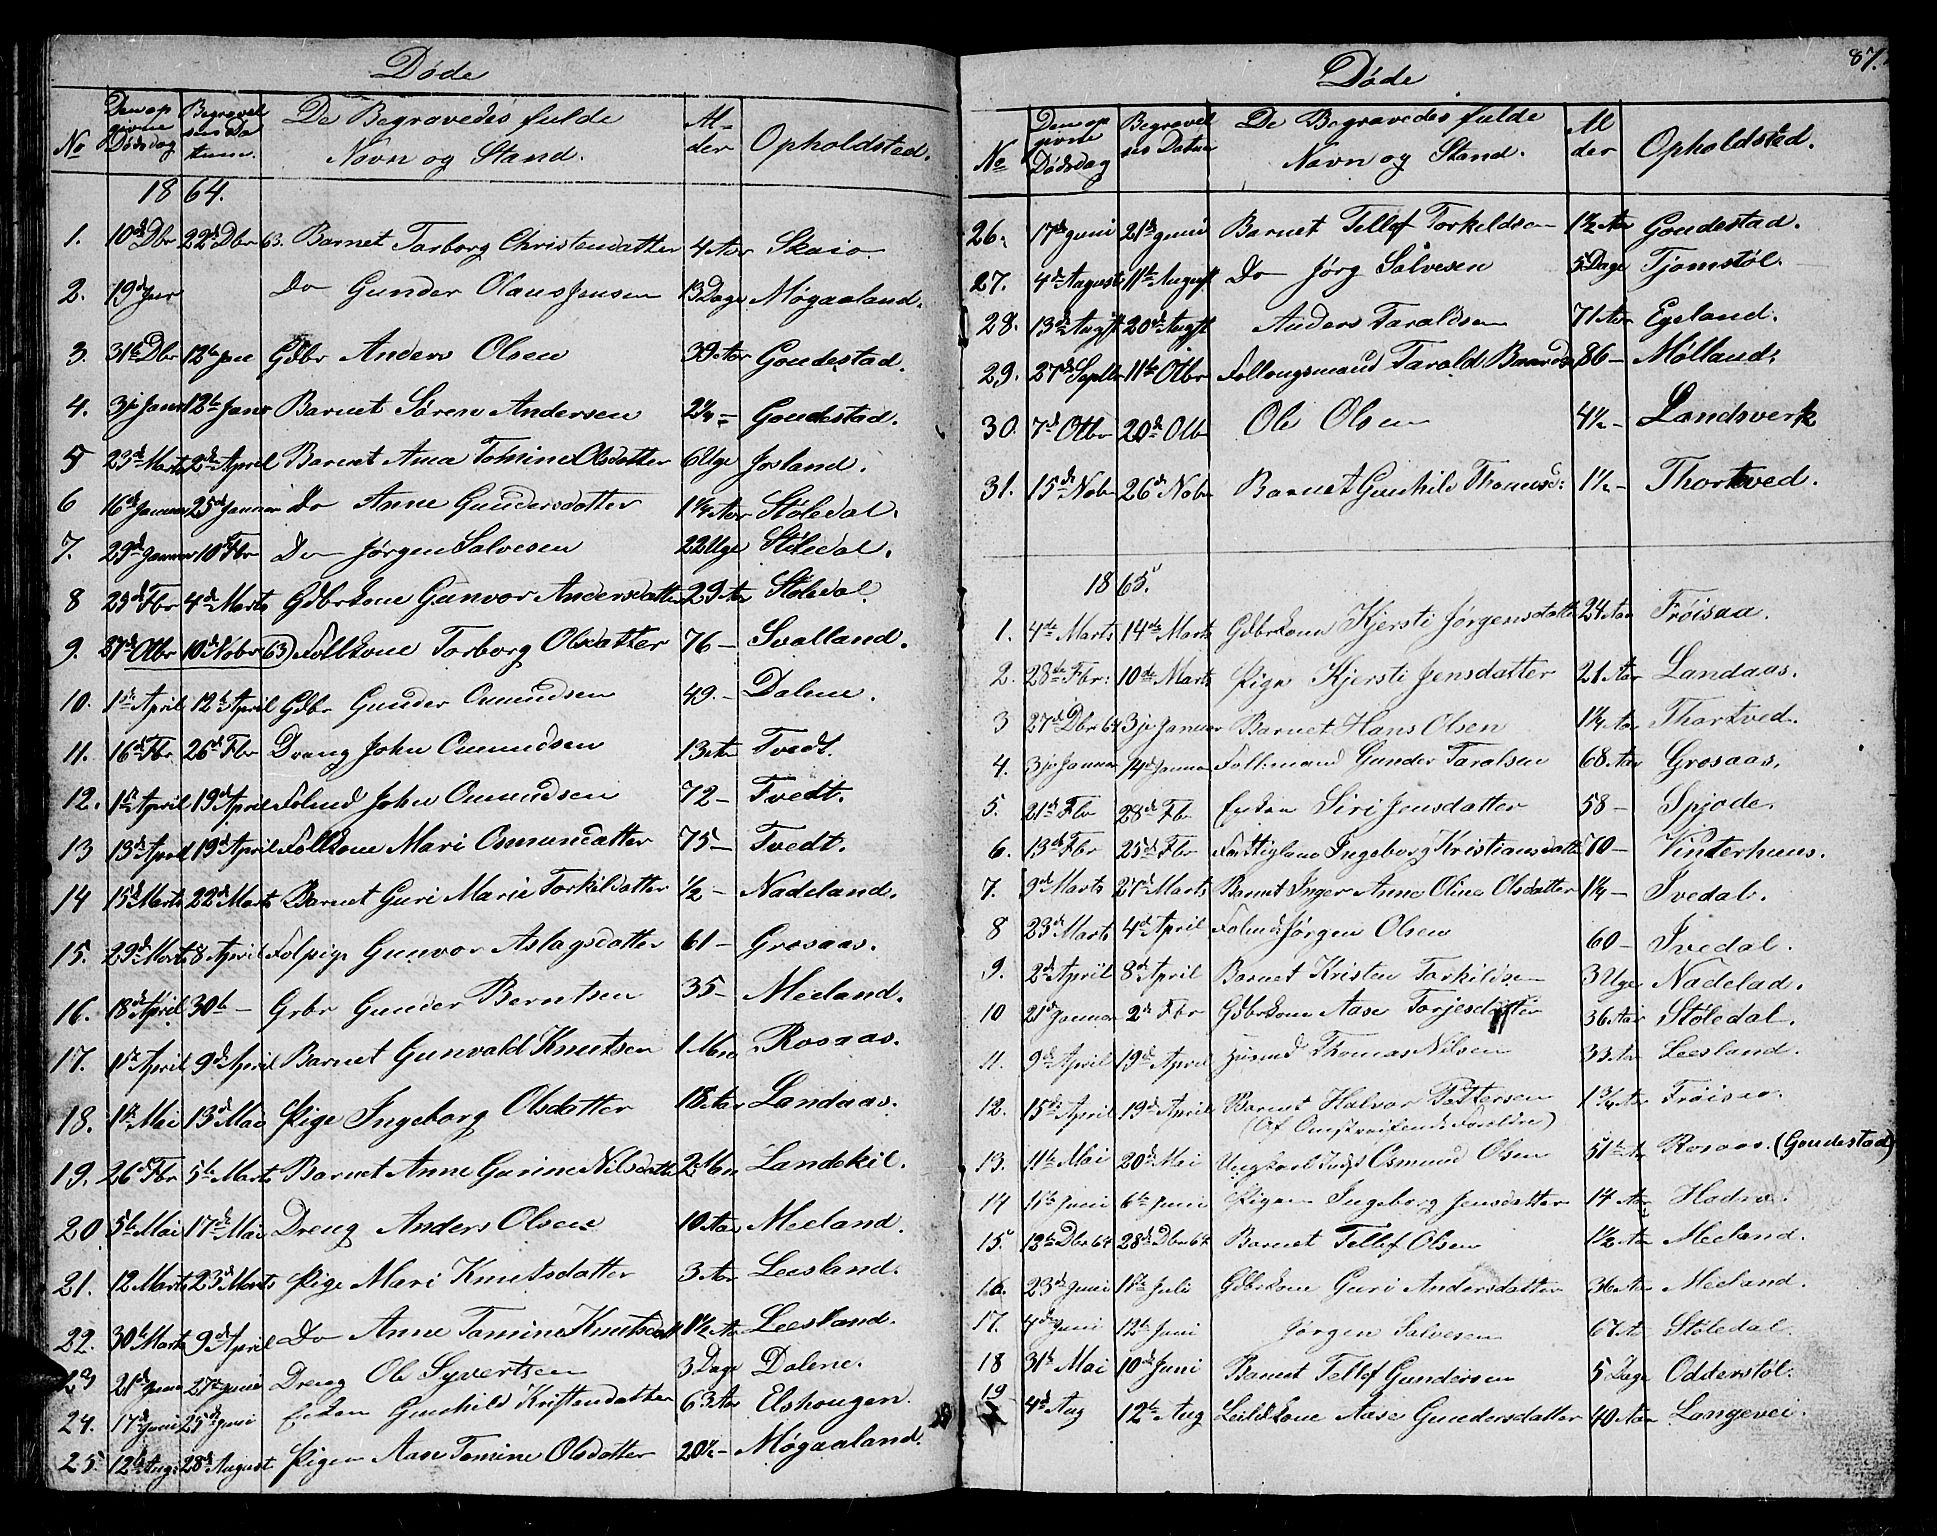 Døde
No
Den op givne Dødsdag
Begravel ses Da tum.
De Begravedes fulde Navn og Stand.
Al- der
Opholdsted.
1864.
1. 10de Dbr 22de Dbr 63. Barnet Torborg Christensdatter 4 Aar Skaio.
2. 19de Jan Do Gunder Olaus Jensen 13 Dage Møgaaland.
3. 31te Dbr 12te Jan Gdbr Anders Olsen 39 Aar Goudestad.
4. 3je Janr 12te Janr Barnet Søren Andersen 2¼ - Goudestad.
5 23de Marts 2de April Barnet Ama Tomine Olsdatter 6 Uge Josland.
6 16de Januar 25de Januar Do Anne Gundersdatter 1¼ Aar Støledal.
7. 29de Januar 10de Fbr Do Jørgen Salvesen 22 Uge Støledal.
8 25de Fbr 4de Marts Gdbrkone Gunvor Andersdatter 29 Aar Støledal.
9. 27de Otbr 10de Nobr (63) Follkone Torborg Olsdatter 76 - Svalland.
10. 1ste April 12te April Gdbr Gunder Osmundsen 49 - Dalene.
11. 16de Fbr 26de Fbr Dreng John Osmundsen 13 Aar Tvedt.
12. 1ste April 19de April Folmd John Osmundsen 72 - Tvedt.
13 13de April 19de April Follkone Mari Osmundatter 75 - Tvedt.
14 15de Marts 22de Marts Barnet Guri Marie Torkildatter ½ - Nadeland.
15. 29de Marts 8 April Folpige Gunvor Aslagsdatter 61 - Grosaas.
16. 18de April 30te - Grbr Gunder Berntsen 35 - Meeland.
17. 1ste April 9de April Barnet Gunvald Knutsen 1 Mnd Rosaas.
18. 1ste Mai 13de Mai Pige Ingeborg Olsdatter 18 Aar Landaas.
19. 26de Fbr 5te Marts Barnet Anne Gurine Nilsdatt 2 Mnd Landskil.
20. 5te Mai 17de Mai Dreng Anders Olsen 10 Aar Meeland.
21. 12 Marts 23de Marts Pige Mari Knutsdatter 3 Aar Leesland.
22. 30te Marts 9de April Do Anne Tomine Knutsdatt 1½ Aar Leesland.
23 21de Juni 27de Juni Dreng Ole Syvertsen 3 Dage Dalene.
24. 17de Juni 25de Juni Enken Gunhild Kristensdatter 63 Aar Elshougen.
25. 12te Aug. 28de August Pigen Aase Tomine Olsdatter 20½ - Møgaaland.
87.
Døde
No
Den op givne Dødsdag
Begravel ses Datum
De Begravedes fulde Navn og Stand.
Al der
Opholdsted.
26. 17de Juni 21de Juni Barnet Tellef Torkildsen 1½ Aar Goudestad.
27. 4de August 11te August Do Jørg Salvesen 5 Dage Tjomstøl.
28. 13de Augst 20de Augst Anders Taraldsen 71 Aar Egeland.
29. 27de Septbr 11te Otbr Follougsmand Tarald 86 - Mølland.
30. 7de Otbr 20de Otbr Ole Olsen 4½ - Landsverk
31. 15de Nobr 26de Nobr Barnet Gunhild Thomasd: 1½ - Thortved.
1865.
1. 4de Marts 14de Marts Gdbrkone Kjersti Jørgensdatte 24 Aar Frøisaa.
2. 28de Fbr: 10de Marts Pige Kjersti Jensdatter 21 Aar Landaas.
3 27de Dbr 64 3je Januar Barnet Hans Olsen 1¼ Aar Thortved.
4. 3je Januar 14de Januar Follmand Gunder Taralsen 68 Aar Grosaas.
5. 21de Fbr 28de Fbr Enken Siri Jensdatter 58 - Spjode.
6. 13de Fbr 25de Fbr Fattiglem Ingeborg Kristiansdatte 70 - Vinterhuus.
7. 9de Marts 27de Marts Barnet Inger Anne Oline Olsdatter 1¼ - Ivedal.
8 23de Marts 4de April Folmd Jørgen Olsen 60 - Ivedal.
9. 2de April 8de April Barnet Kristen Torkildsen 3 Uge Nadelad.
10 21de Januar 2de Fbr Gdbrkone Aase Torjesdatter 36 Aar Støledal.
11. 9de April 19de April Husmd Thomas Nilsen 33 Aar Leesland.
12. 15de April 19de April Barnet Halvor Pettersen (Af Omstreifende Forældre) 1¾ Aar Frøisaa.
13. 11te Mai 20de Mai Ungkarl Inds Osmund Olsen 51 Aar Rosaas. (Goudestad)
14 1ste Juni 6te Juni Pigen Ingeborg Jensdatter 14 Aar
15. 13de Dbr 64 28de Dbr 64 Barnet Tellef Olsen 1½ Aar Meeland.
16. 23de Juni 1ste Juli Gdbrkone Guri Andersdatter 36 Aar Meeland.
17. 4de Juni 12te Juni Jørgen Salvesen 67 Aar Støledal.
18 31te Mai 10de Juni Barnet Tellef Gundersen 5 Dage Odderstøl.
19 4de Aug 12te Aug Leildkone Aase Gundersdatter 40 Aar Langevei.